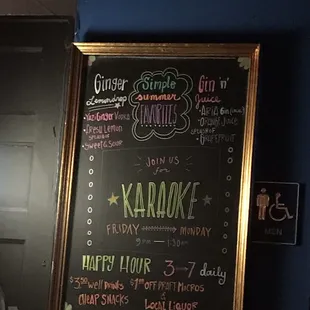 Ginger
Lemondrop
Yazi Ginger Vodka
Fresh Lemon
Splash of
Sweet & Sour
Simple
summer
FAVORITES
Gin 'n'
Juice
Orange Juice
Splash of
Grapefruit
JOIN US
for
KARAOKE
FRIDAY
MONDAY
9pm — 1:30am
HAPPY HOUR 3 → 7 daily
well DRINKS
CHEAP SNACKS
$1 OFF DRAFT MICROS
&
LOCAL LIQUOR
MEN